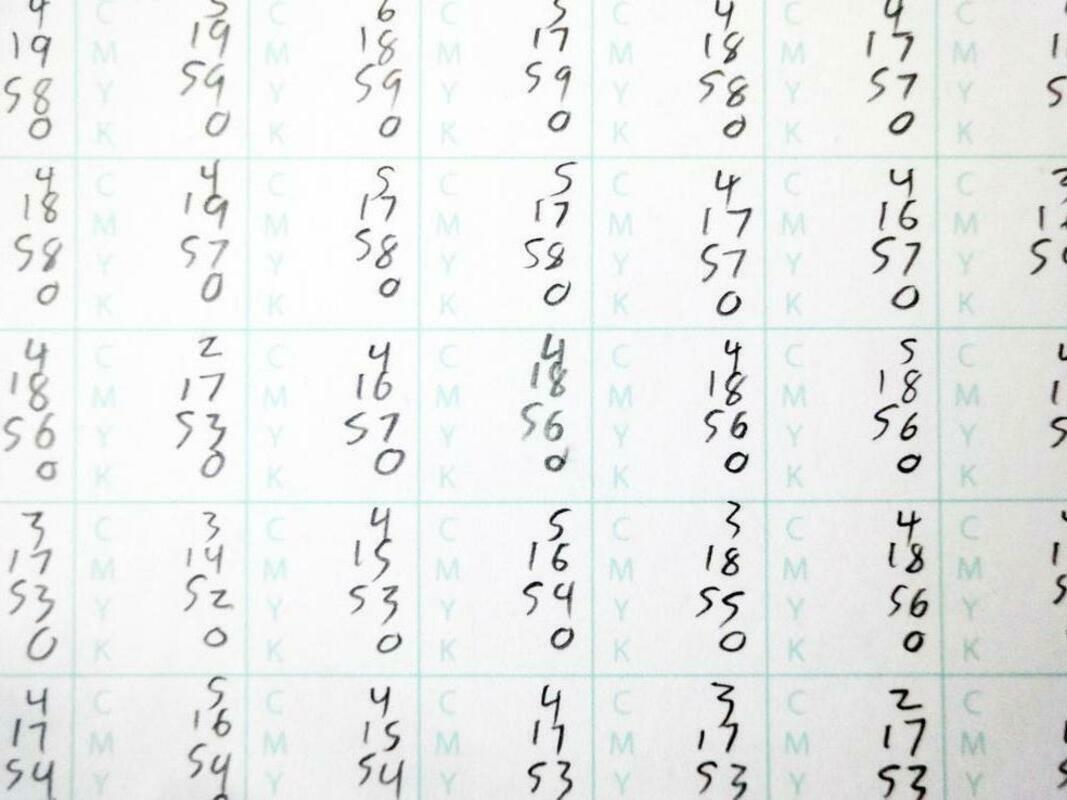 4 C 5 C 6 C 5 C 4 C 4 C
19 M 19 M 18 M 17 M 18 M 17 M
58 Y 59 Y 59 Y 59 Y 58 Y 57 Y
0 K 0 K 0 K 0 K 0 K 0 K
4 C 4 C 5 C 5 C 4 C 4 C
18 M 19 M 17 M 17 M 17 M 16 M
58 Y 57 Y 58 Y 58 Y 57 Y 57 Y
0 K 0 K 0 K 0 K 0 K 0 K
4 C 2 C 4 C 4 C 4 C 5 C
18 M 17 M 16 M 18 M 18 M 18 M
56 Y 53 Y 57 Y 56 Y 56 Y 56 Y
0 K 0 K 0 K 0 K 0 K 0 K
3 C 3 C 4 C 5 C 3 C 4 C
17 M 14 M 15 M 16 M 18 M 18 M
53 Y 52 Y 53 Y 54 Y 55 Y 56 Y
0 K 0 K 0 K 0 K 0 K 0 K
4 C 5 C 4 C 4 C 3 C 2 C
17 M 16 M 15 M 17 M 17 M 17 M
54 Y 54 Y 54 Y 53 Y 53 Y 53 Y